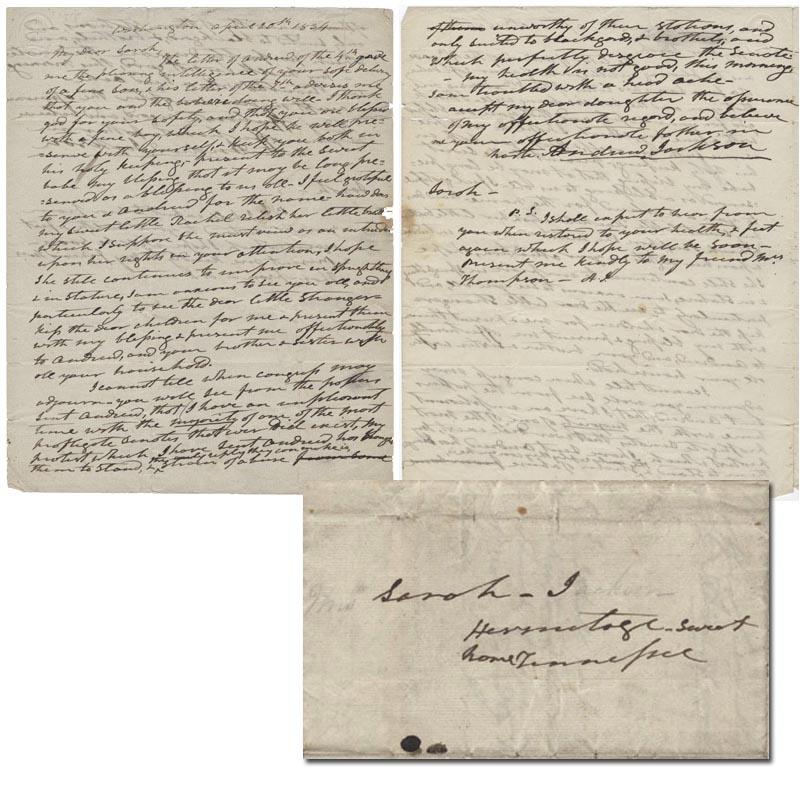 Washington April 20th 1834
My dear Sarah,
The letter of Andrew of the 4th gave
me the pleasing intelligence of your safe delivery
of a fine son, & his letter of the 7th advises me
that you and the babe are doing well. I thank
god for your safety, and that you are blessed
with a fine boy, which I hope he will pre-
-serve with yourself, & keep you both in
his holy keeping; present to the sweet
babe my blessing that it may be long pre-
-served as a blessing to us all - I feel grateful
to you & Andrew for the name - how does
my sweet little Rachel relish her little
which I suppose she must view as an
upon her rights in your attention, I hope
she still continues to improve in
& in stature, I am anxious to see you all, and
particularly to see the dear little stranger -
kiss the dear children for me & present them
with my blessing & present me affectionately
to Andrew, and your brother & sister with
all your household.
I cannot tell when congress may
adjourn - you will see from the papers
sent Andrew, that I have an unpleasant
time with the majority of one of the most
profligate Senates, that ever did exist, my
protest which I have sent Andrew, has
the only reply they can make is,
them to stand, & a strain of abuse from some
of them unworthy of their stations, and
only suited to blackgard, & brothels, and
which perfectly disgrace the Senate
my health is not good, this morning
I am troubled with a head ache -
accept my dear daughter the assurance
of my affectionate regard, and believe
me your affectionate father in
haste. Andrew Jackson
Sarah -
P.S. I shall expect to hear from
you when restored to your health, & feet
again which I hope will be soon -
present me kindly to my friend Mrs
Thompson - A.J.
Sarah - Jackson
Hermitage - sweet
home Tennessee